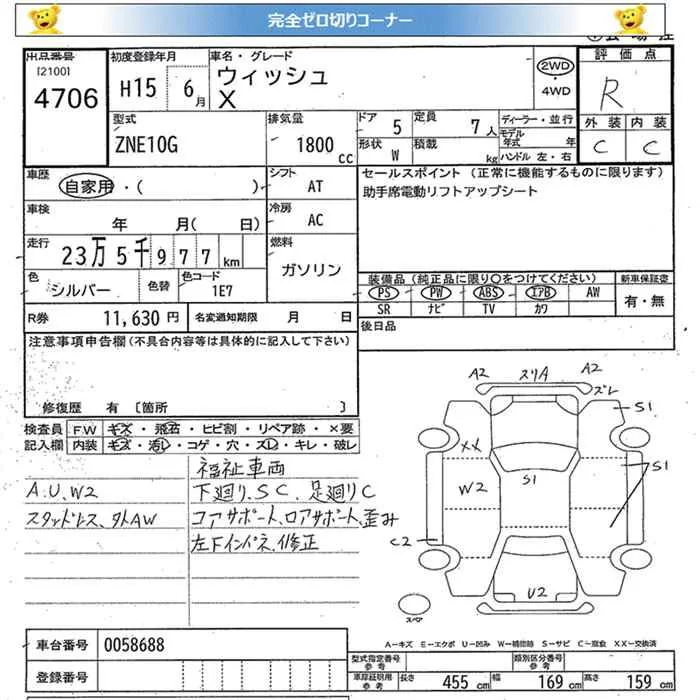 完全ゼロ切りコーナー
出品番号 初度登録年月 車名・グレード 評価点
[2100]
4706 H15 6月 ウィッシュ X 2WD ・4WD R
型式 排気量 ドア 5 定員 7人 ディーラー・並行 外装 内装
ZNE10G 1800cc 形状 W 積載 kg モデル年式 年 C C
ハンドル 左・右
車歴 シフト セールスポイント (正常に機能するものに限ります)
自家用・( ) AT 助手席電動リフトアップシート
車検 冷房
年 月(日) AC
走行 燃料
23万5千977km ガソリン
色 色替 色コード 装備品 (純正品に限り○をつけてください) 新車保証書
シルバー 1E7 PS PW ABS エアB AW 有・無
SR ナビ TV カワ
R券 11,630円 名変通知期限 月 日 後日品
注意事項申告欄(不具合内容等は具体的に記入して下さい)
修復歴 有 [箇所 ]
検査員 F.W キズ・飛石・ヒビ割・リペア跡・×要
記入欄 内装 キズ・汚レ・コゲ・穴・スレ・キレ・破レ
福祉車両
A.U.W2 下廻り.SC.足廻りC
スタッドレス、外AW コアサポート.ロアサポート.歪み
左下インパネ.修正
A2 スリA A2
ズレ
S1
XX
W2 S1 S1
C2
U2
スペア
A－キズ E－エクボ U－凹み W－補修跡 S－サビ C－腐食 XX－交換済
車台番号 0058688
登録番号
型式指定番号 参考 類別区分番号 参考
車庫証明用 参考 長さ 455cm 幅 169cm 高さ 159cm